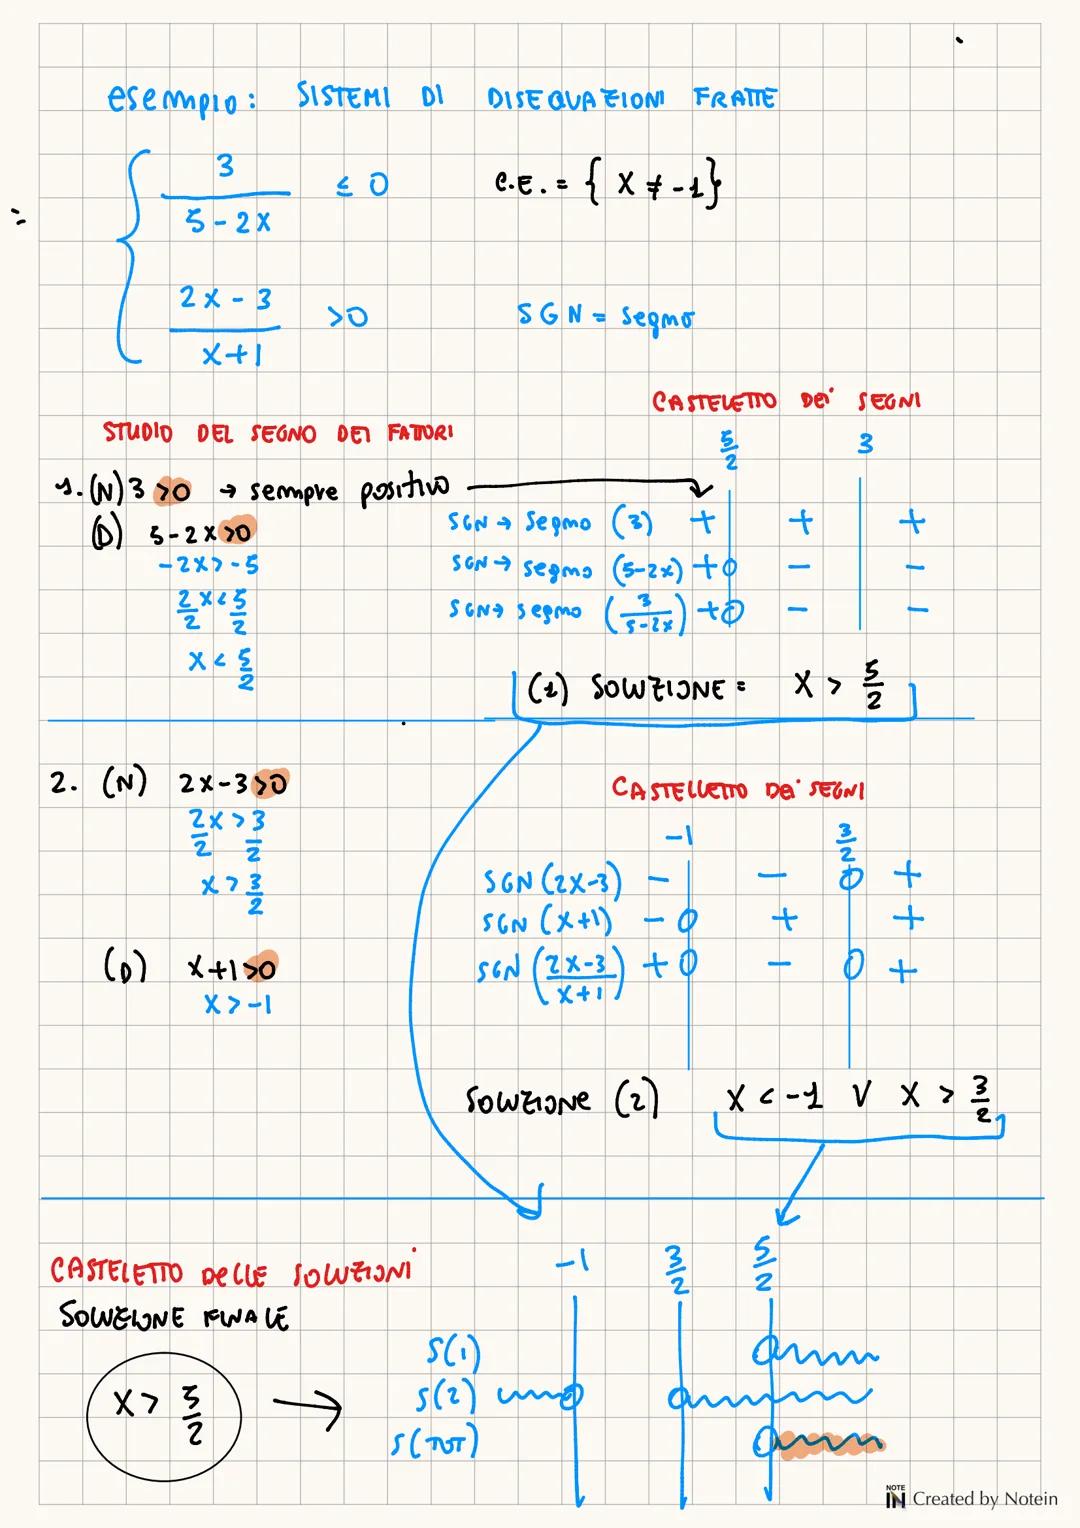 esempio: SISTEMI DI DISEQUAZIONI FRATTE
3 / (5-2x) ≤ 0
C.E. = { X ≠ -1}
(2x-3) / (x+1) >0
SGN = segno
CASTELETTO DEI SEGNI
STUDIO DEL SEGNO DEI FATTORI
5/2 3
1. (N) 3 >0 → sempre positivo
(D) 5-2x >0
-2x > -5
2/2 x < 5/2
x < 5/2
SGN → segno (3) + + +
SGN → segno (5-2x) +0 - -
SGN → segno (3/(5-2x)) +0 - -
(1) SOLUZIONE = X > 5/2
2. (N) 2x-3 >0
2x/2 > 3/2
x > 3/2
(D) x+1 >0
x > -1
CASTELLETTO DEI SEGNI
-1 3/2
SGN (2x-3) - - 0 +
SGN (x+1) - 0 + +
SGN ((2x-3)/(x+1)) + 0 - 0 +
SOLUZIONE (2) X < -1 V X > 3/2
CASTELETTO DELLE SOLUZIONI
SOLUZIONE FINALE
X > 5/2 →
-1 3/2 5/2
S(1)
S(2)
S(TOT)
NOTE IN Created by Notein